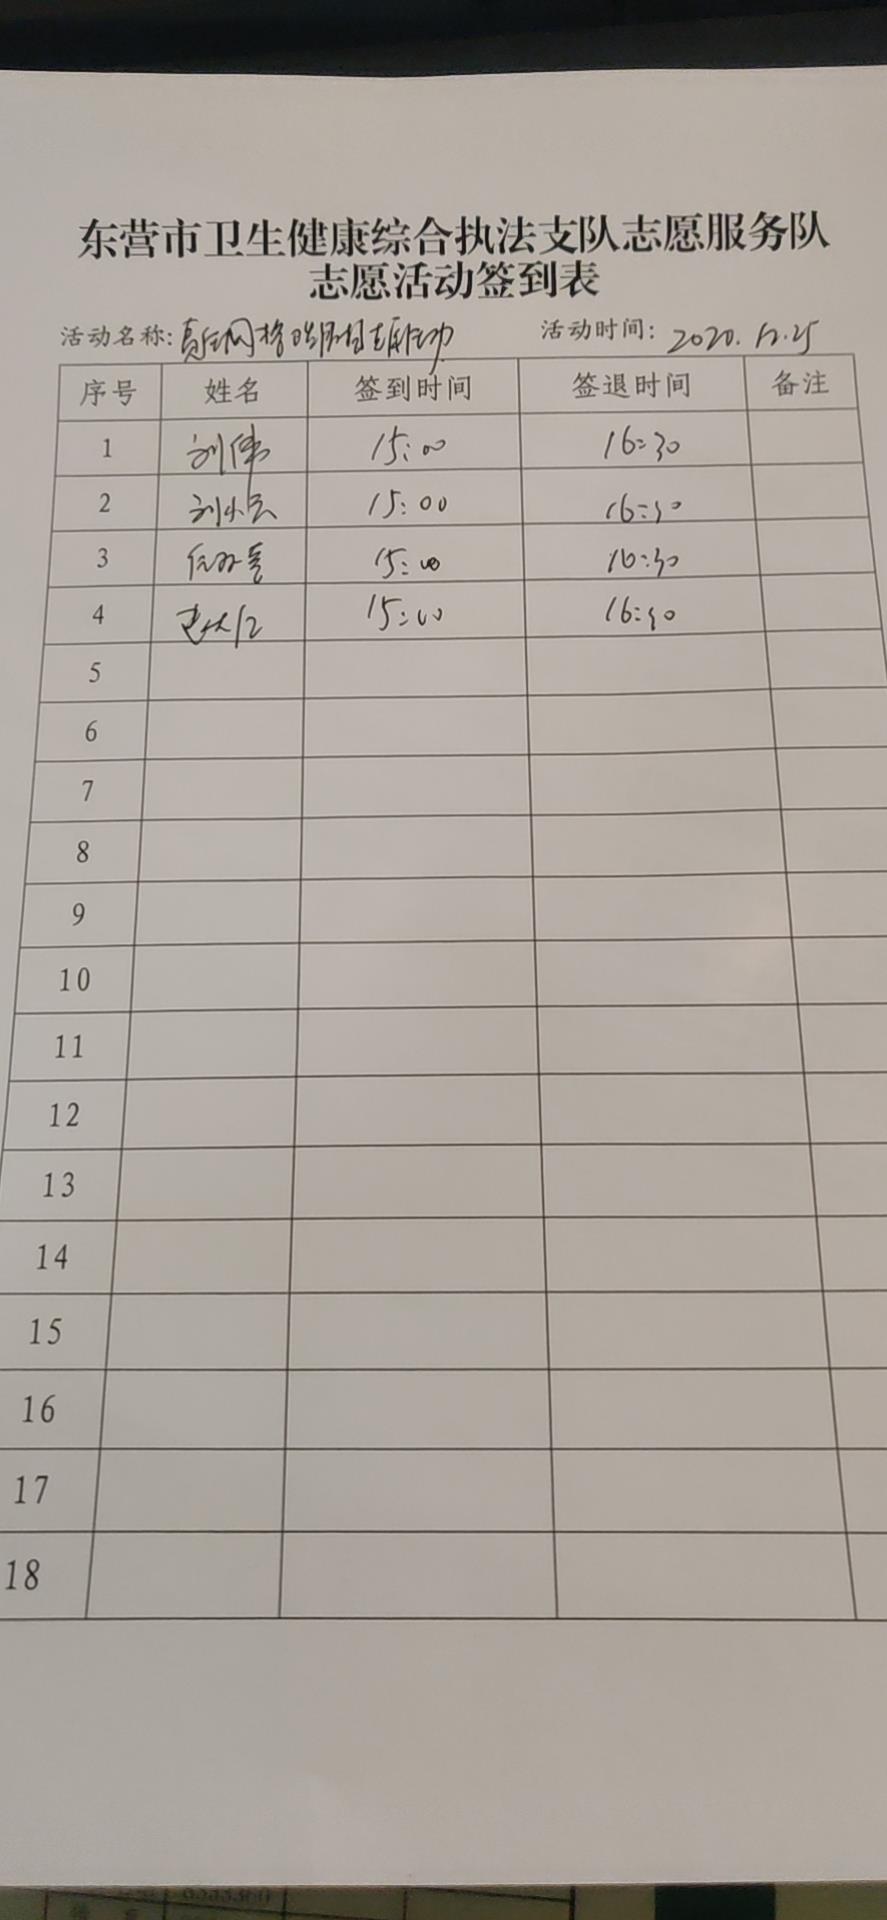 东营市卫生健康综合执法支队志愿服务队
志愿活动签到表
活动名称: 活动时间: 2020.12.25
序号 姓名 签到时间 签退时间 备注
1 刘伟 15:00 16:30
2 15:00 16:30
3 15:00 16:30
4 15:00 16:30
5
6
7
8
9
10
11
12
13
14
15
16
17
18